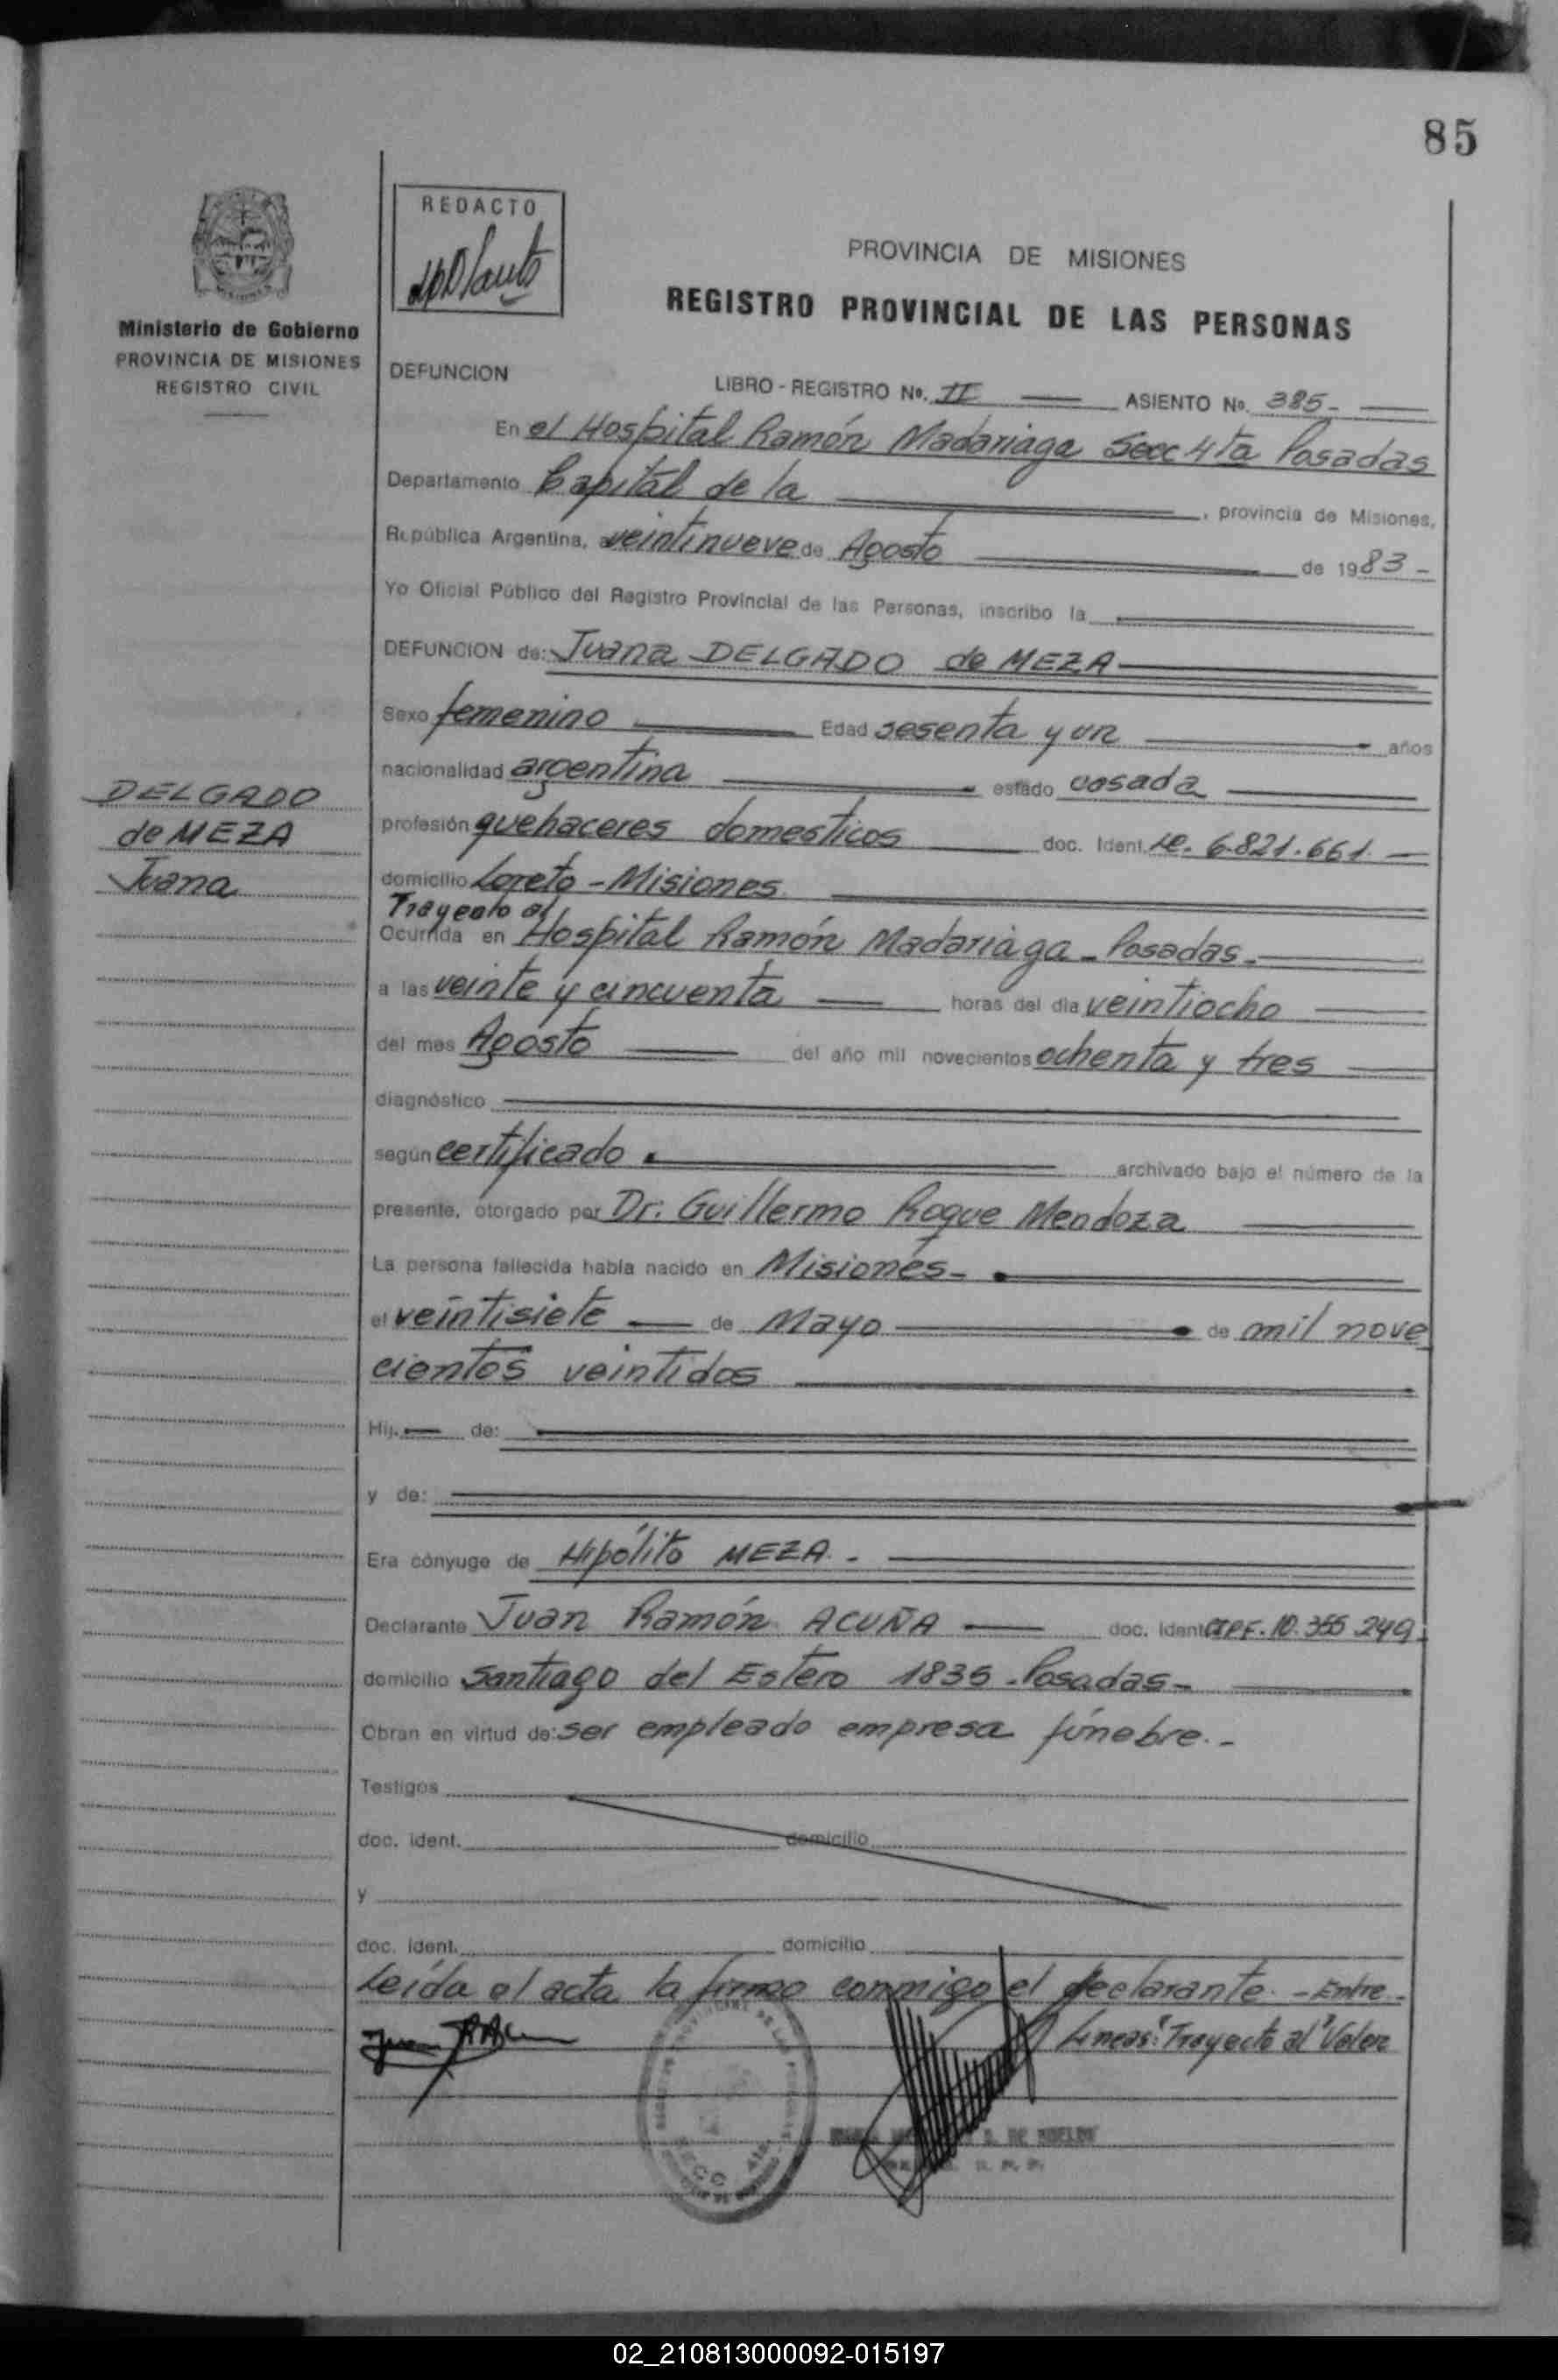 85
REDACTO
Ministerio de Gobierno
PROVINCIA DE MISIONES
REGISTRO CIVIL
PROVINCIA DE MISIONES
REGISTRO PROVINCIAL DE LAS PERSONAS
DEFUNCION
LIBRO - REGISTRO No. II ASIENTO No. 385-
En el Hospital Ramón Madariaga Secc 4ta Posadas
Departamento Capital de la , provincia de Misiones,
República Argentina, a veintinueve de Agosto de 1983-
Yo Oficial Público del Registro Provincial de las Personas, inscribo la
DEFUNCION de: Juana DELGADO de MEZA
Sexo femenino Edad sesenta y un años
nacionalidad argentina estado casada
DELGADO
de MEZA
Juana
profesión quehaceres domesticos doc. Ident. LC. 6.821.661.
domicilio Loreto - Misiones
Trayecto al
Ocurrida en Hospital Ramón Madariaga - Posadas.-
a las veinte y cincuenta horas del día veintiocho
del mes Agosto del año mil novecientos ochenta y tres
diagnóstico
según certificado archivado bajo el número de la
presente, otorgado por Dr. Guillermo Roque Mendoza
La persona fallecida había nacido en Misiones-
el veintisiete de Mayo de mil nove
cientos veintidos
Hij. de:
y de:
Era cónyuge de Hipólito MEZA.-
Declarante Juan Ramón ACUÑA doc. Ident. CIPF. 10.355.249.
domicilio Santiago del Estero 1835 - Posadas-
Obran en virtud de: ser empleado empresa fúnebre.-
Testigos
doc. ident. domicilio
y
doc. ident. domicilio
Leída el acta la firmo conmigo el declarante. - Entre-
Líneas: "Trayecto al" Valen
02_210813000092-015197